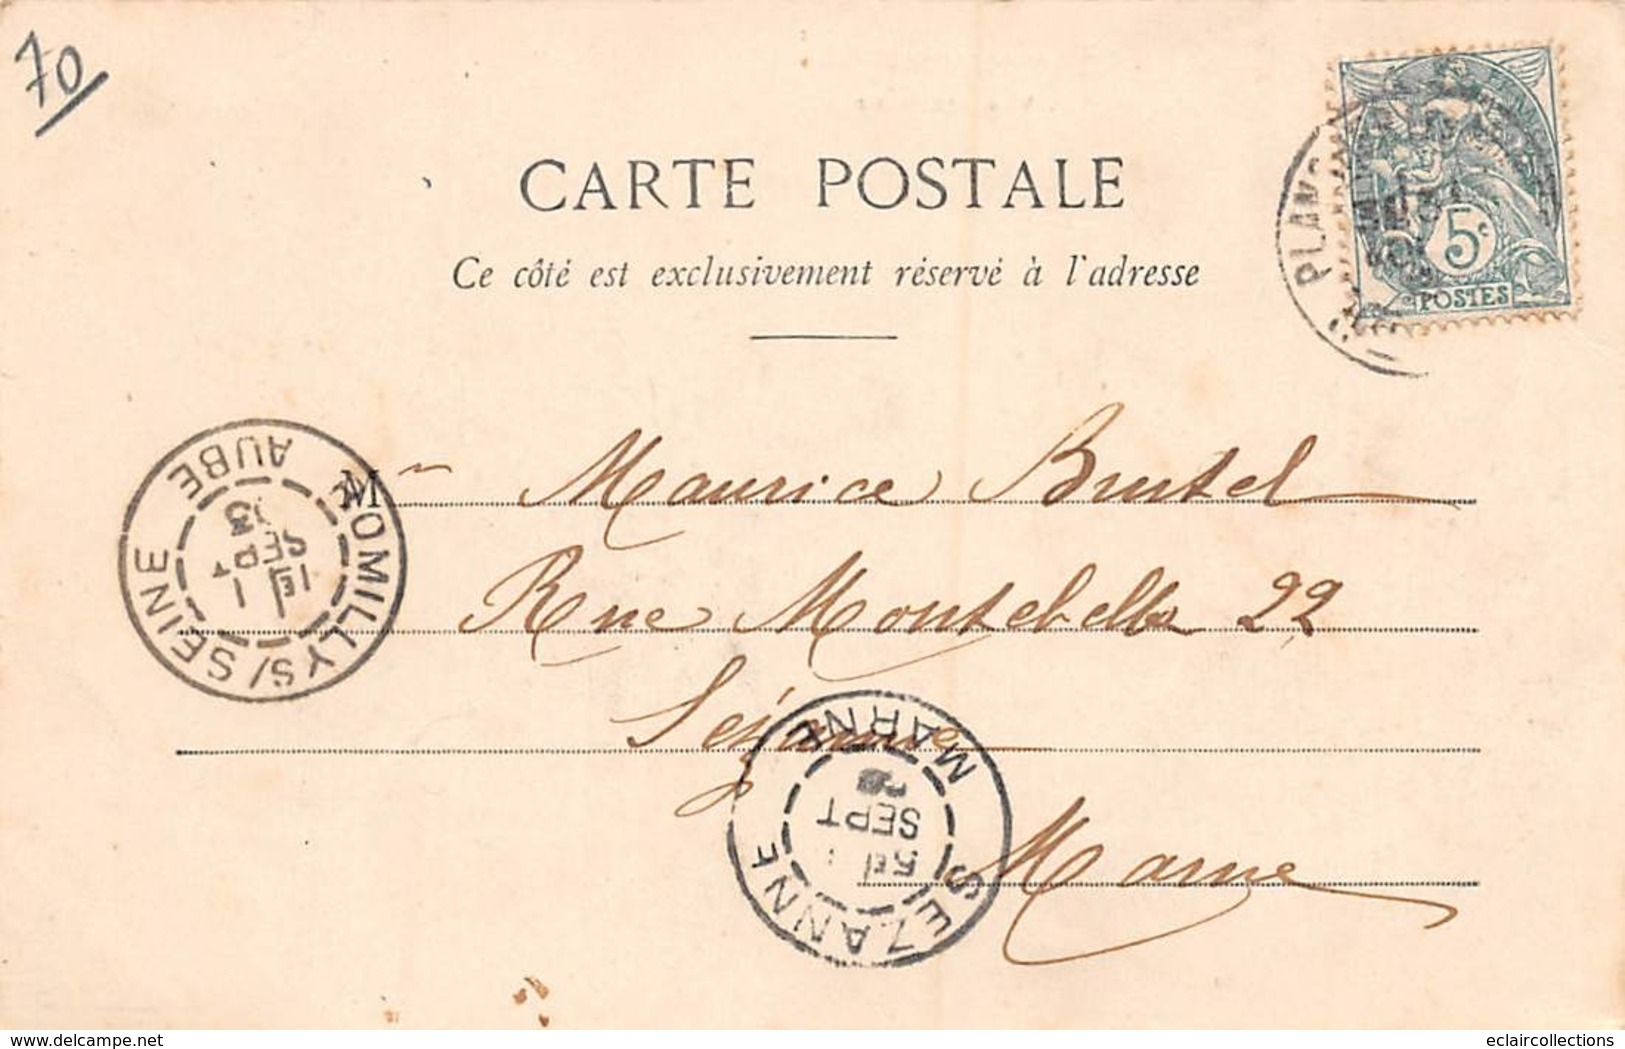 70
CARTE POSTALE
Ce côté est exclusivement réservé à l'adresse
5c
POSTES
PLAN
ROMILLY S/SEINE
AUBE
1E 1
SEPT
03
M Maurice Brutel
Rue Montebello 22
Sézanne
Marne
SEZANNE
MARNE
5E
SEPT
delcampe.net
eclaircollections